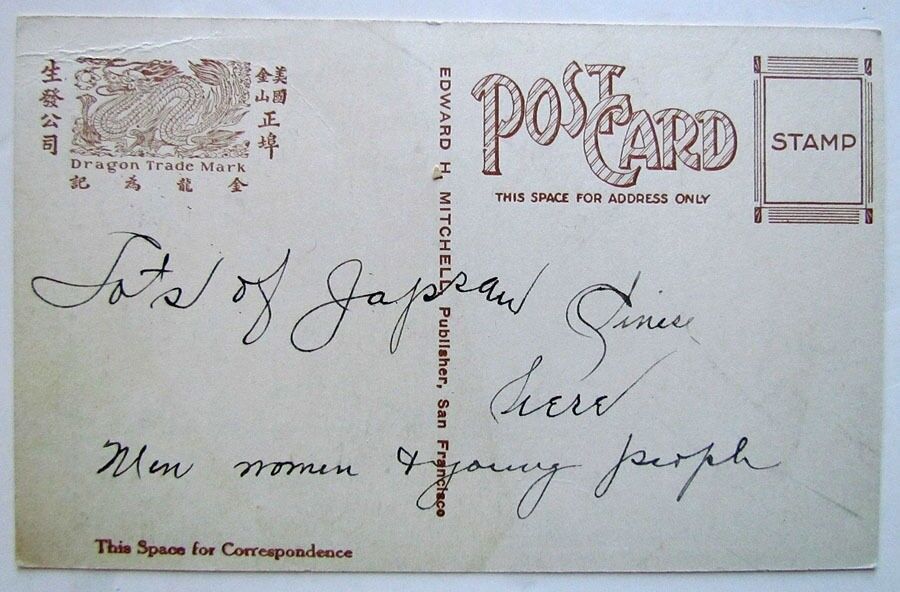 生發公司
美國
金山
正埠
Dragon Trade Mark
記為龍金
EDWARD H. MITCHELL, Publisher, San Francisco
POST CARD
THIS SPACE FOR ADDRESS ONLY
STAMP
Lots of Japsan Ginese
here
Men women & young people
This Space for Correspondence